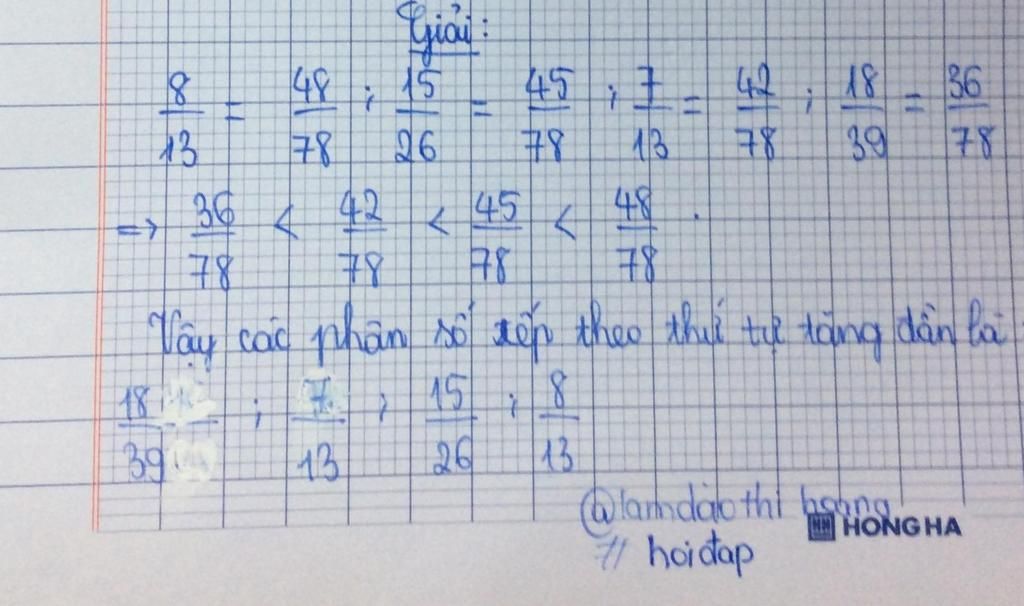 Giải:
8/13 = 48/78 ; 15/26 = 45/78 ; 7/13 = 42/78 ; 18/39 = 36/78
=> 36/78 < 42/78 < 45/78 < 48/78 .
Vậy các phân số xếp theo thứ tự tăng dần là
18/39 ; 7/13 ; 15/26 ; 8/13
@lamdàothi hoang
HONG HA
# hoiđap